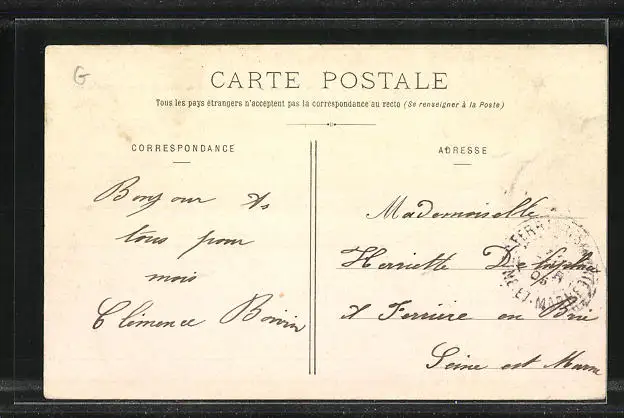 G
CARTE POSTALE
Tous les pays étrangers n'acceptent pas la correspondance au recto (Se renseigner à la Poste)
CORRESPONDANCE
Bonjour As
tous pour
mois
Clémence Boivin
ADRESSE
Mademoiselle
Henriette
A Ferriere en Brie
Seine est Marne
ET-MARNE